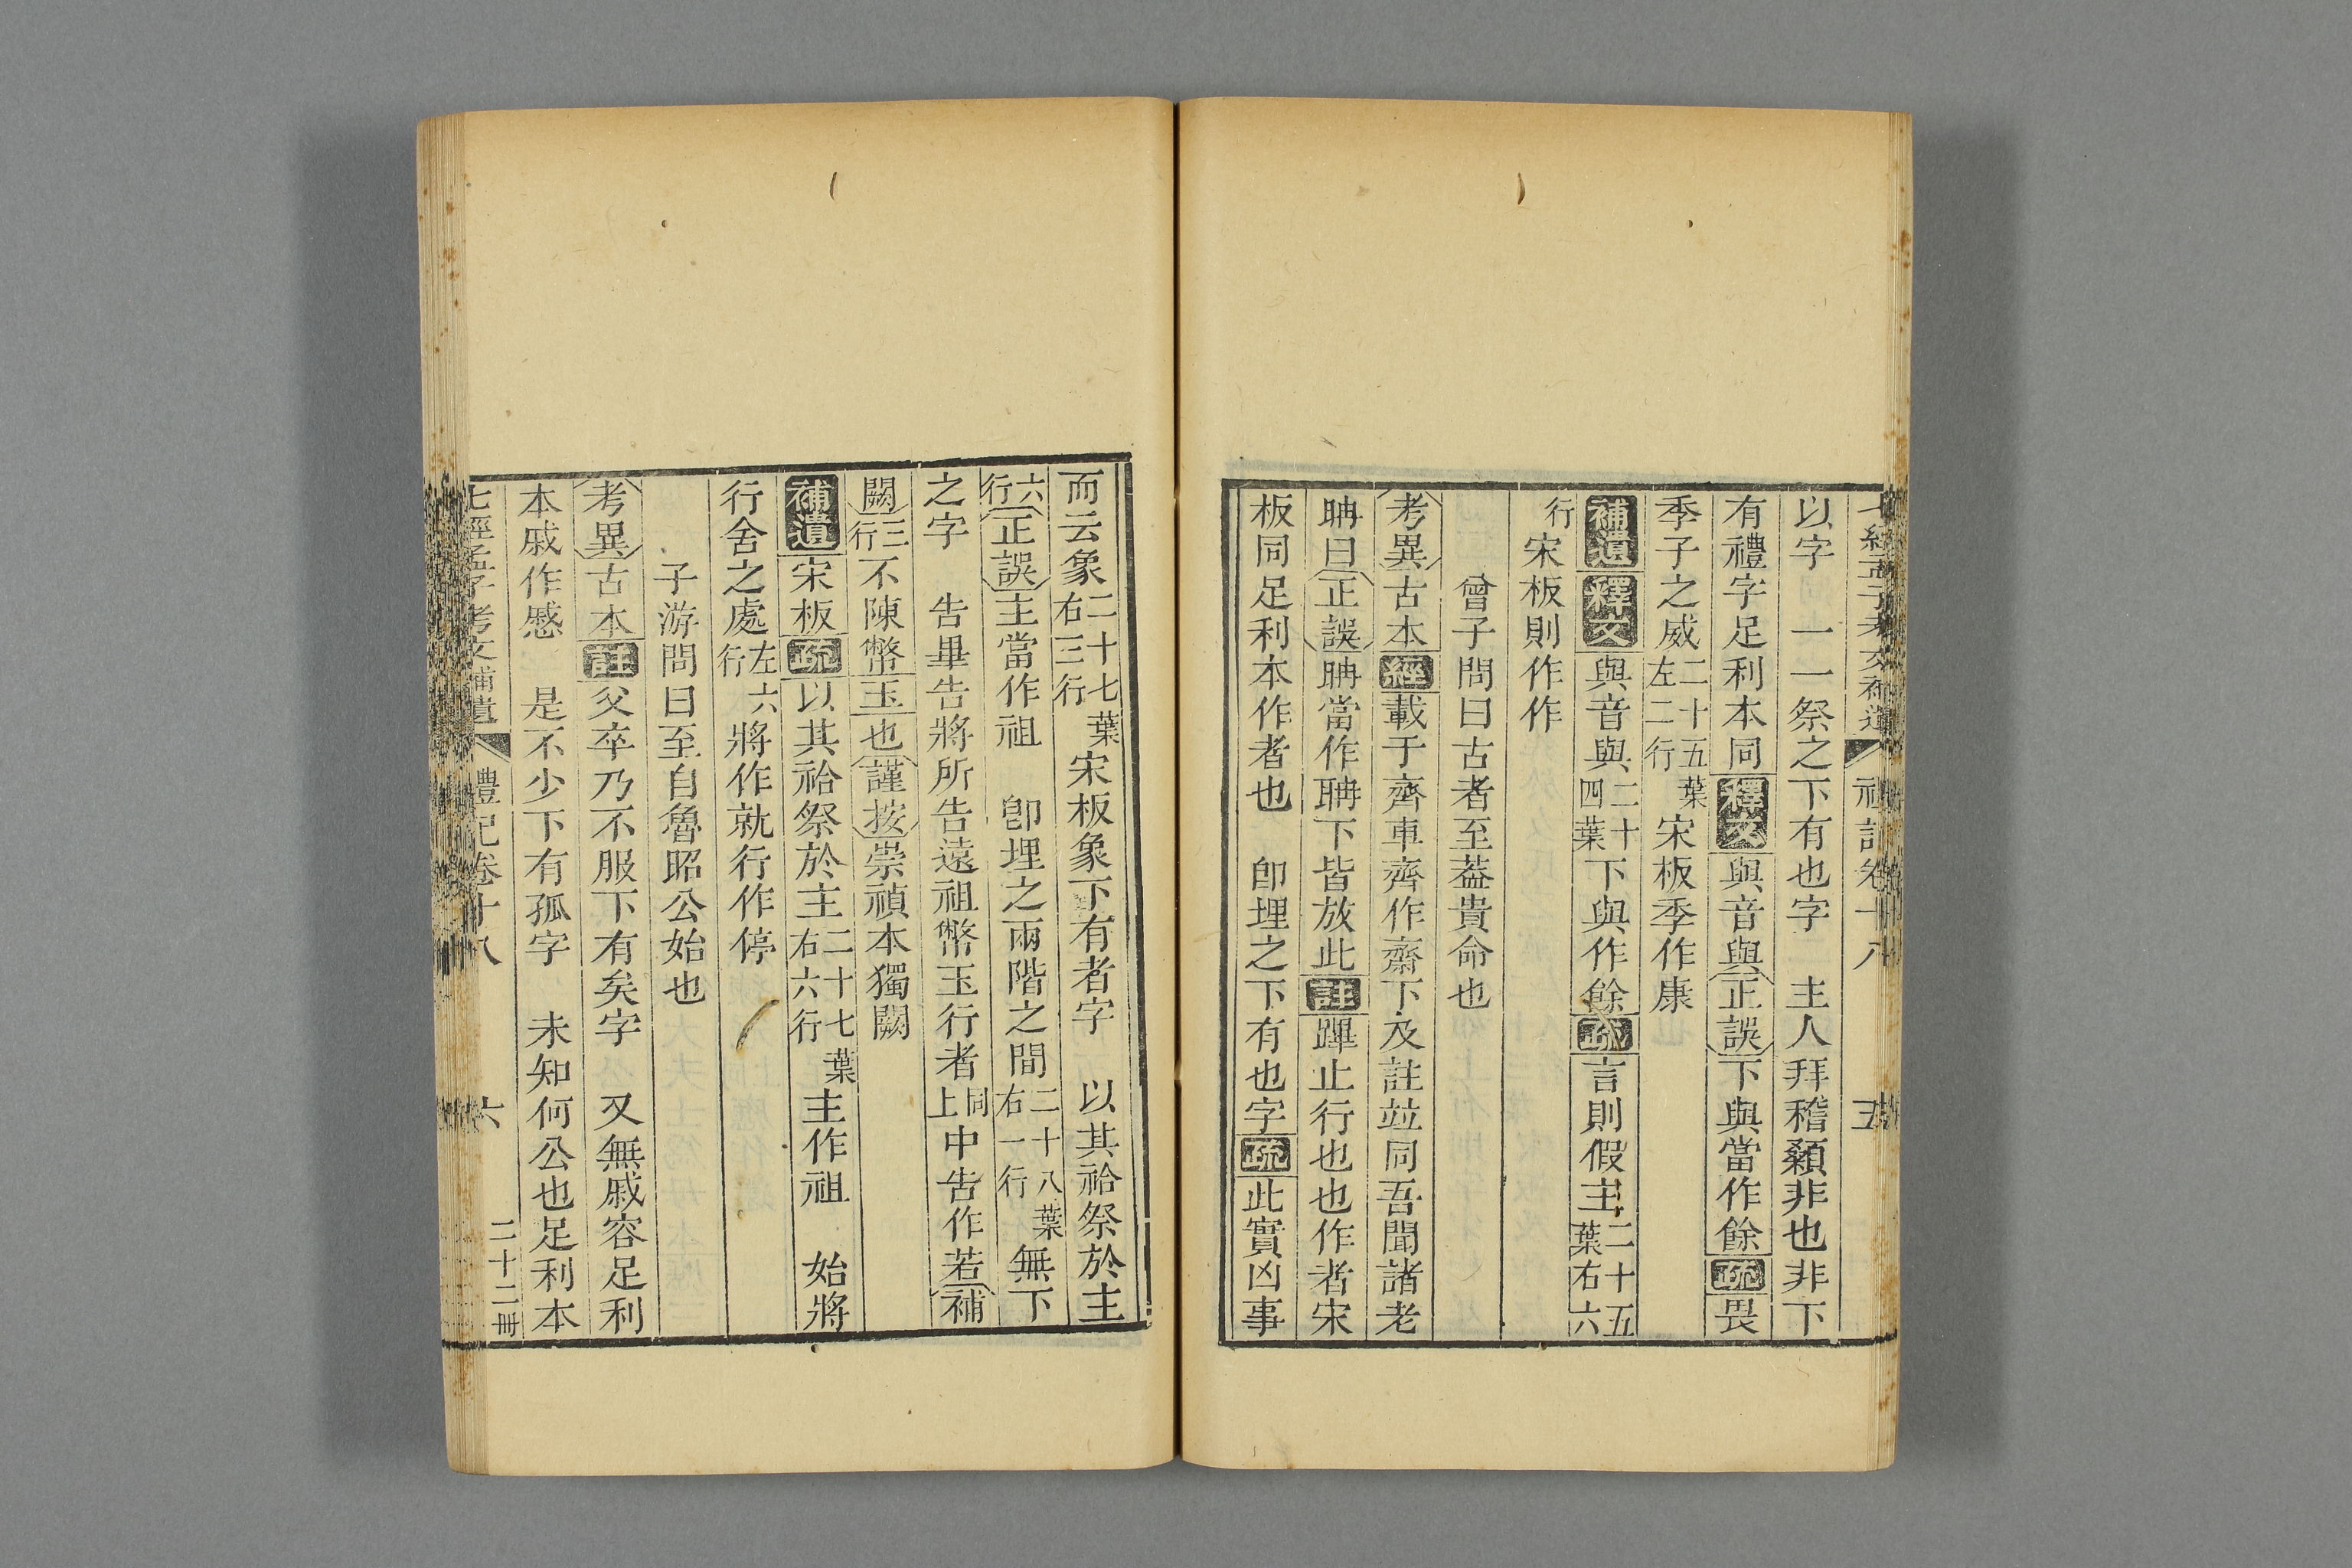 七經孟子考文補遺 禮記卷十八 五
以字 一一祭之下有也字 主人拜稽顙非也非下
有禮字足利本同釋文與音與正誤下與當作餘疏畏
季子之威二十五葉左二行宋板季作康
補遺釋文與音與二十四葉下與作餘疏言則假主二十五葉右六
行宋板則作作
曾子問曰古者至蓋貴命也
考異古本經載于齊車齊作齋下及註竝同吾聞諸老
聃曰正誤聃當作聃下皆放此註蹕止行也也作者宋
板同足利本作者也 卽埋之下有也字疏此實凶事
而云象二十七葉右三行宋板象下有者字 以其祫祭於主
六行正誤主當作祖 卽埋之兩階之間二十八葉右一行無下
之字 告畢告將所告遠祖幣玉行者同上中告作若補
闕三行不陳幣玉也謹按崇禎本獨闕
補遺宋板疏以其祫祭於主二十七葉右六行主作祖 始將
行舍之處左六行將作就行作停
子游問曰至自魯昭公始也
考異古本註父卒乃不服下有矣字 又無戚容足利
本戚作慼 是不少下有孤字 未知何公也足利本
七經孟子考文補遺 禮記卷十八 六 二十二冊